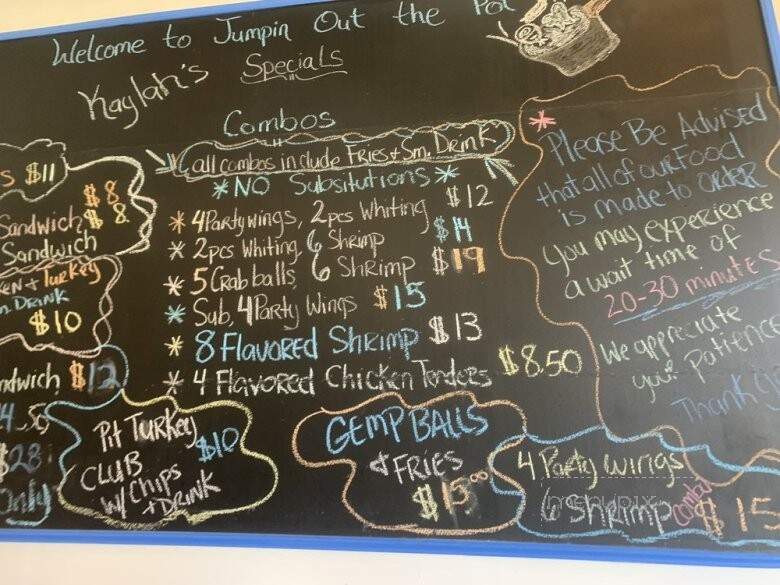 Welcome to Jumpin Out the Pot
Kaylah's Specials
Combos
all combos include Fries + Sm. Drink
*NO Subsitutions*
* 4 Party wings, 2pcs Whiting $12
* 2pcs Whiting, 6 Shrimp $14
* 5 Crab balls, 6 Shrimp $19
* Sub, 4 Party Wings $15
* 8 Flavored Shrimp $13
* 4 Flavored Chicken Tenders $8.50
s $11
$8
Sandwich $8
Sandwich
ken + Turkey
m. Drink
$10
ndwich $12
$28
Only
Pit Turkey $10
CLUB
w/ Chips
+ DRINK
GEMP BALLS
& FRIES
$15.00
4 Party wings
6 Shrimp combo $15
* Please Be Advised
that all of our Food
is made to ORDER
You may experience
a wait time of
20-30 minutes
We appreciate
your Patience
Thank
menupix